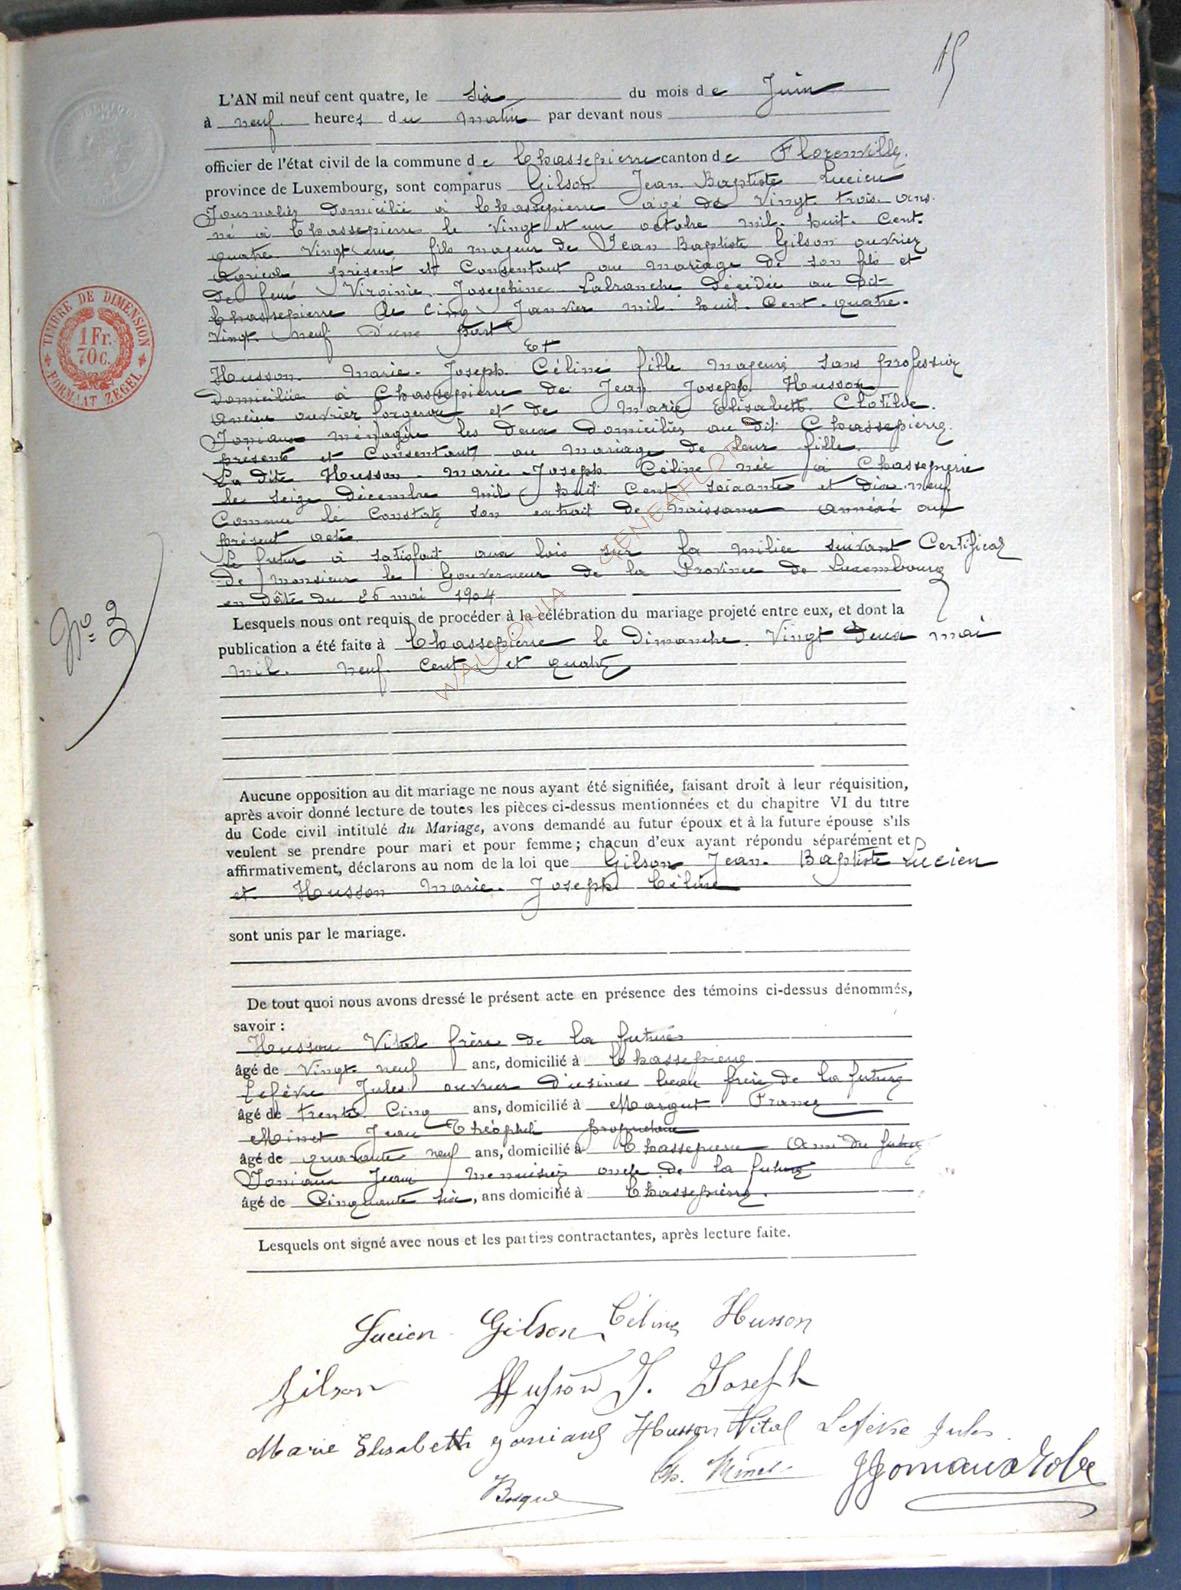 15
L'AN mil neuf cent quatre, le six du mois de Juin
à neuf heures du matin par devant nous
officier de l'état civil de la commune de Chassepierre canton de Florenville
province de Luxembourg, sont comparus Gilson Jean Baptiste Lucien
Journalier domicilié à Chassepierre âgé de Vingt trois ans
né à Chassepierre le Vingt et un octobre mil huit Cent
quatre Vingt un fils majeur de Jean Baptiste Gilson ouvrier
Agricol présent et Consentant au mariage de son fils et
de feue Virginie Josephine Labranche décédée au dit
Chassepierre le cinq Janvier mil huit Cent quatre
Vingt neuf D'une part
Et
Husson Marie Joseph Céline fille majeure sans profession
domiciliée à Chassepierre de Jean Joseph Husson
Ancien ouvrier forgeron et de Marie Elisabeth Clotilde
Joniaux ménagère les deux domiciliés au dit Chassepierre
présents et Consentant au mariage de leur fille
La dite Husson Marie Joseph Céline née à Chassepierre
le seize décembre mil huit Cent soixante et dix neuf
Comme le Constate son extrait de naissance annéxé au
présent acte
Le futur à satisfait aux lois sur la milice suivant Certificat
de Monsieur le Gouverneur de la Province de Luxembourg
en date du 26 mai 1904
TIMBRE DE DIMENSION
1 Fr.
70 C.
FORMAAT ZEGEL
No 3
Lesquels nous ont requis de procéder à la célébration du mariage projeté entre eux, et dont la
publication a été faite à Chassepierre le dimanche Vingt deux mai
mil neuf Cent et quatre
WALLONIA GENEAFLOR
Aucune opposition au dit mariage ne nous ayant été signifiée, faisant droit à leur réquisition,
après avoir donné lecture de toutes les pièces ci-dessus mentionnées et du chapitre VI du titre
du Code civil intitulé du Mariage, avons demandé au futur époux et à la future épouse s'ils
veulent se prendre pour mari et pour femme ; chacun d'eux ayant répondu séparément et
affirmativement, déclarons au nom de la loi que Gilson Jean Baptiste Lucien
et Husson Marie Joseph Céline
sont unis par le mariage.
De tout quoi nous avons dressé le présent acte en présence des témoins ci-dessus dénommés,
savoir :
Husson Vital frère de la future
âgé de Vingt neuf ans, domicilié à Chassepierre
Lefèvre Jules ouvrier d'usines beau frère de la future
âgé de trente Cinq ans, domicilié à Margut France
Minet Jean Théophile propriétaire
âgé de quarante neuf ans, domicilié à Chassepierre Ami du futur
Joniaux Jean menuisier oncle de la future
âgé de Cinquante six, ans domicilié à Chassepierre.
Lesquels ont signé avec nous et les parties contractantes, après lecture faite.
Lucien Gilson Céline Husson
Gilson Husson J. Joseph
Marie Elisabeth Joniaux Husson Vital Lefèvre Jules
Th. Minet JJoniaux